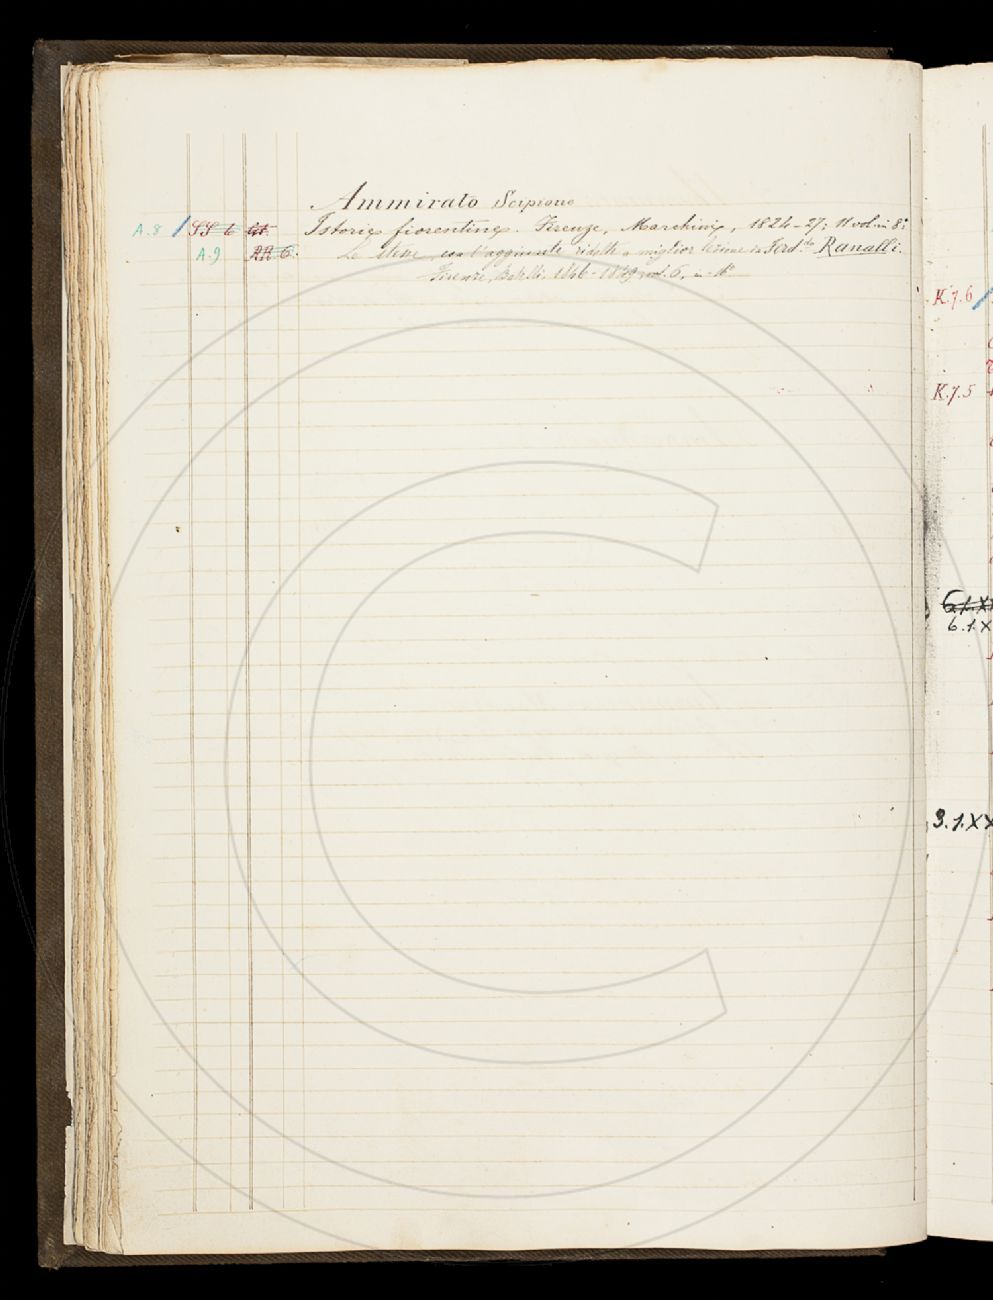 Ammirato Scipione
A.8 SS 6 Istorie fiorentine. Firenze, Marchini, 1824-27; 11 vol. in 8°
A.9 AR 6. Le stesse, con l'aggiunte ridotte a miglior lezione da Ferd.do Ranalli.
Firenze, Batelli. 1846-1849 vol. 6, in-
K.7.6
K.7.5
6.1.X
6.1.X
3.1.XX